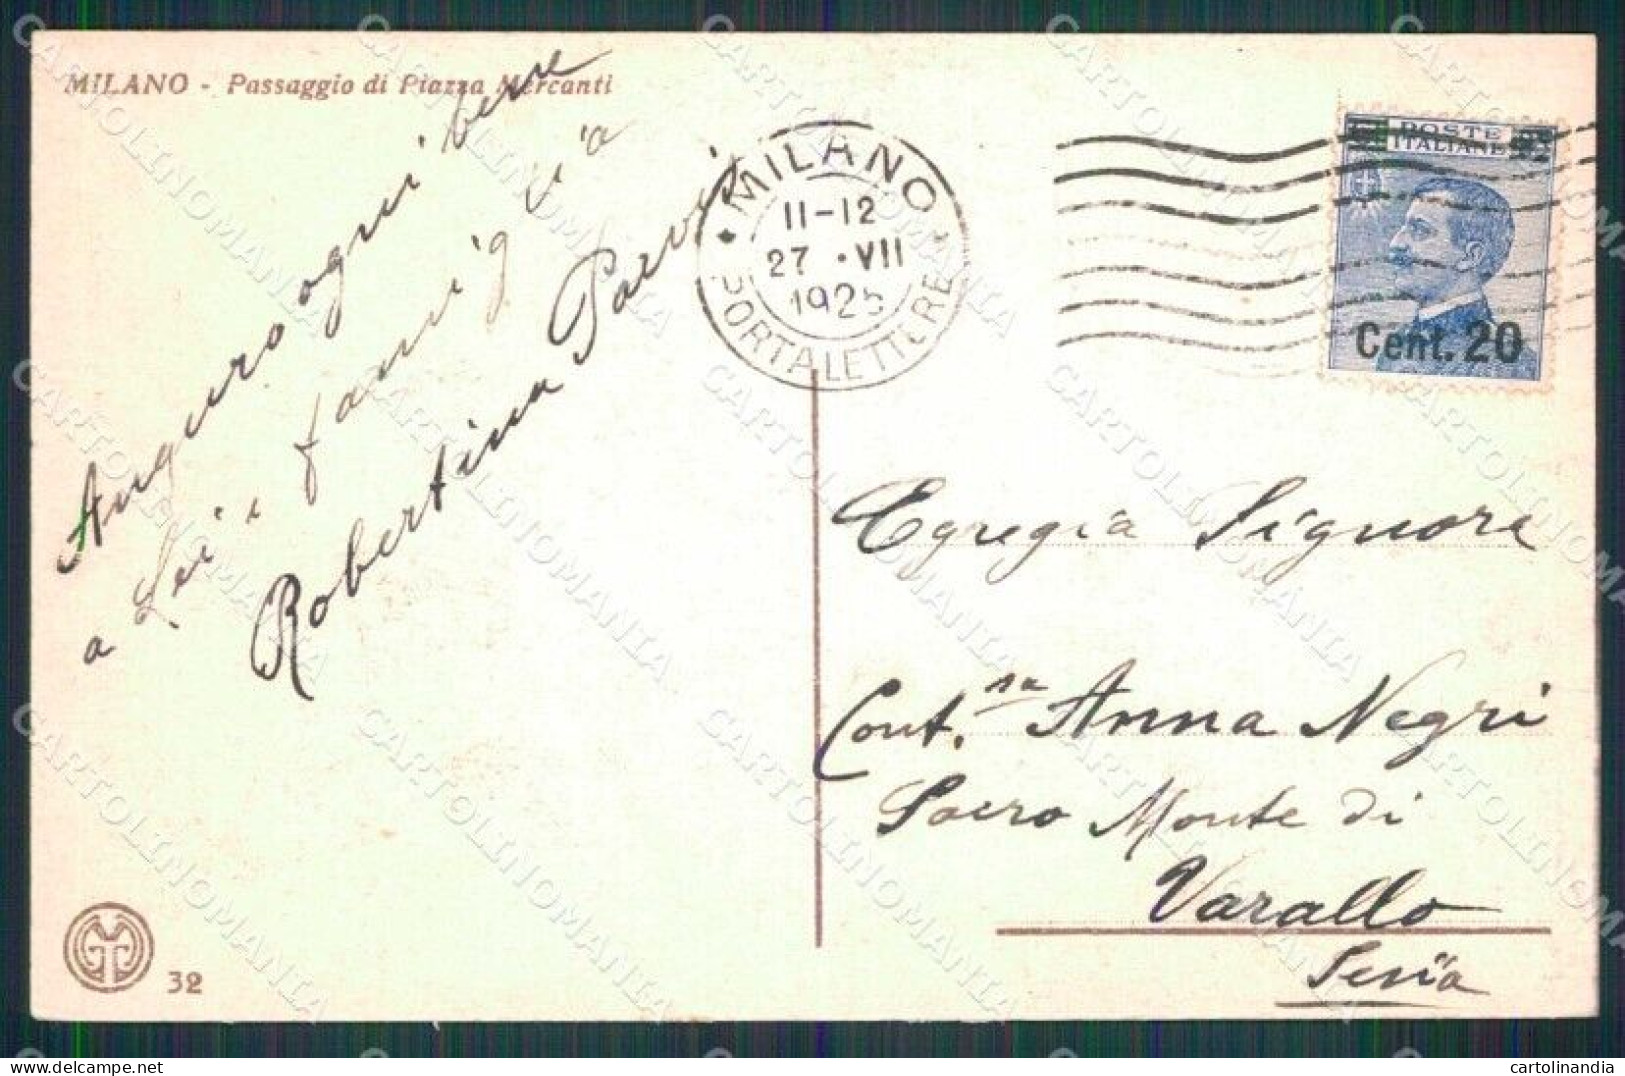 MILANO - Passaggio di Piazza Mercanti
Auguro ogni bene
a Lei e famiglia
Robertina
MILANO
11-12
27 · VII
1925
PORTALETTERE
POSTE
ITALIANE
Cent. 20
Egregia Signora
Cont.sa Anna Negri
Sacro Monte di
Varallo
Sesia
32
cartolinandia